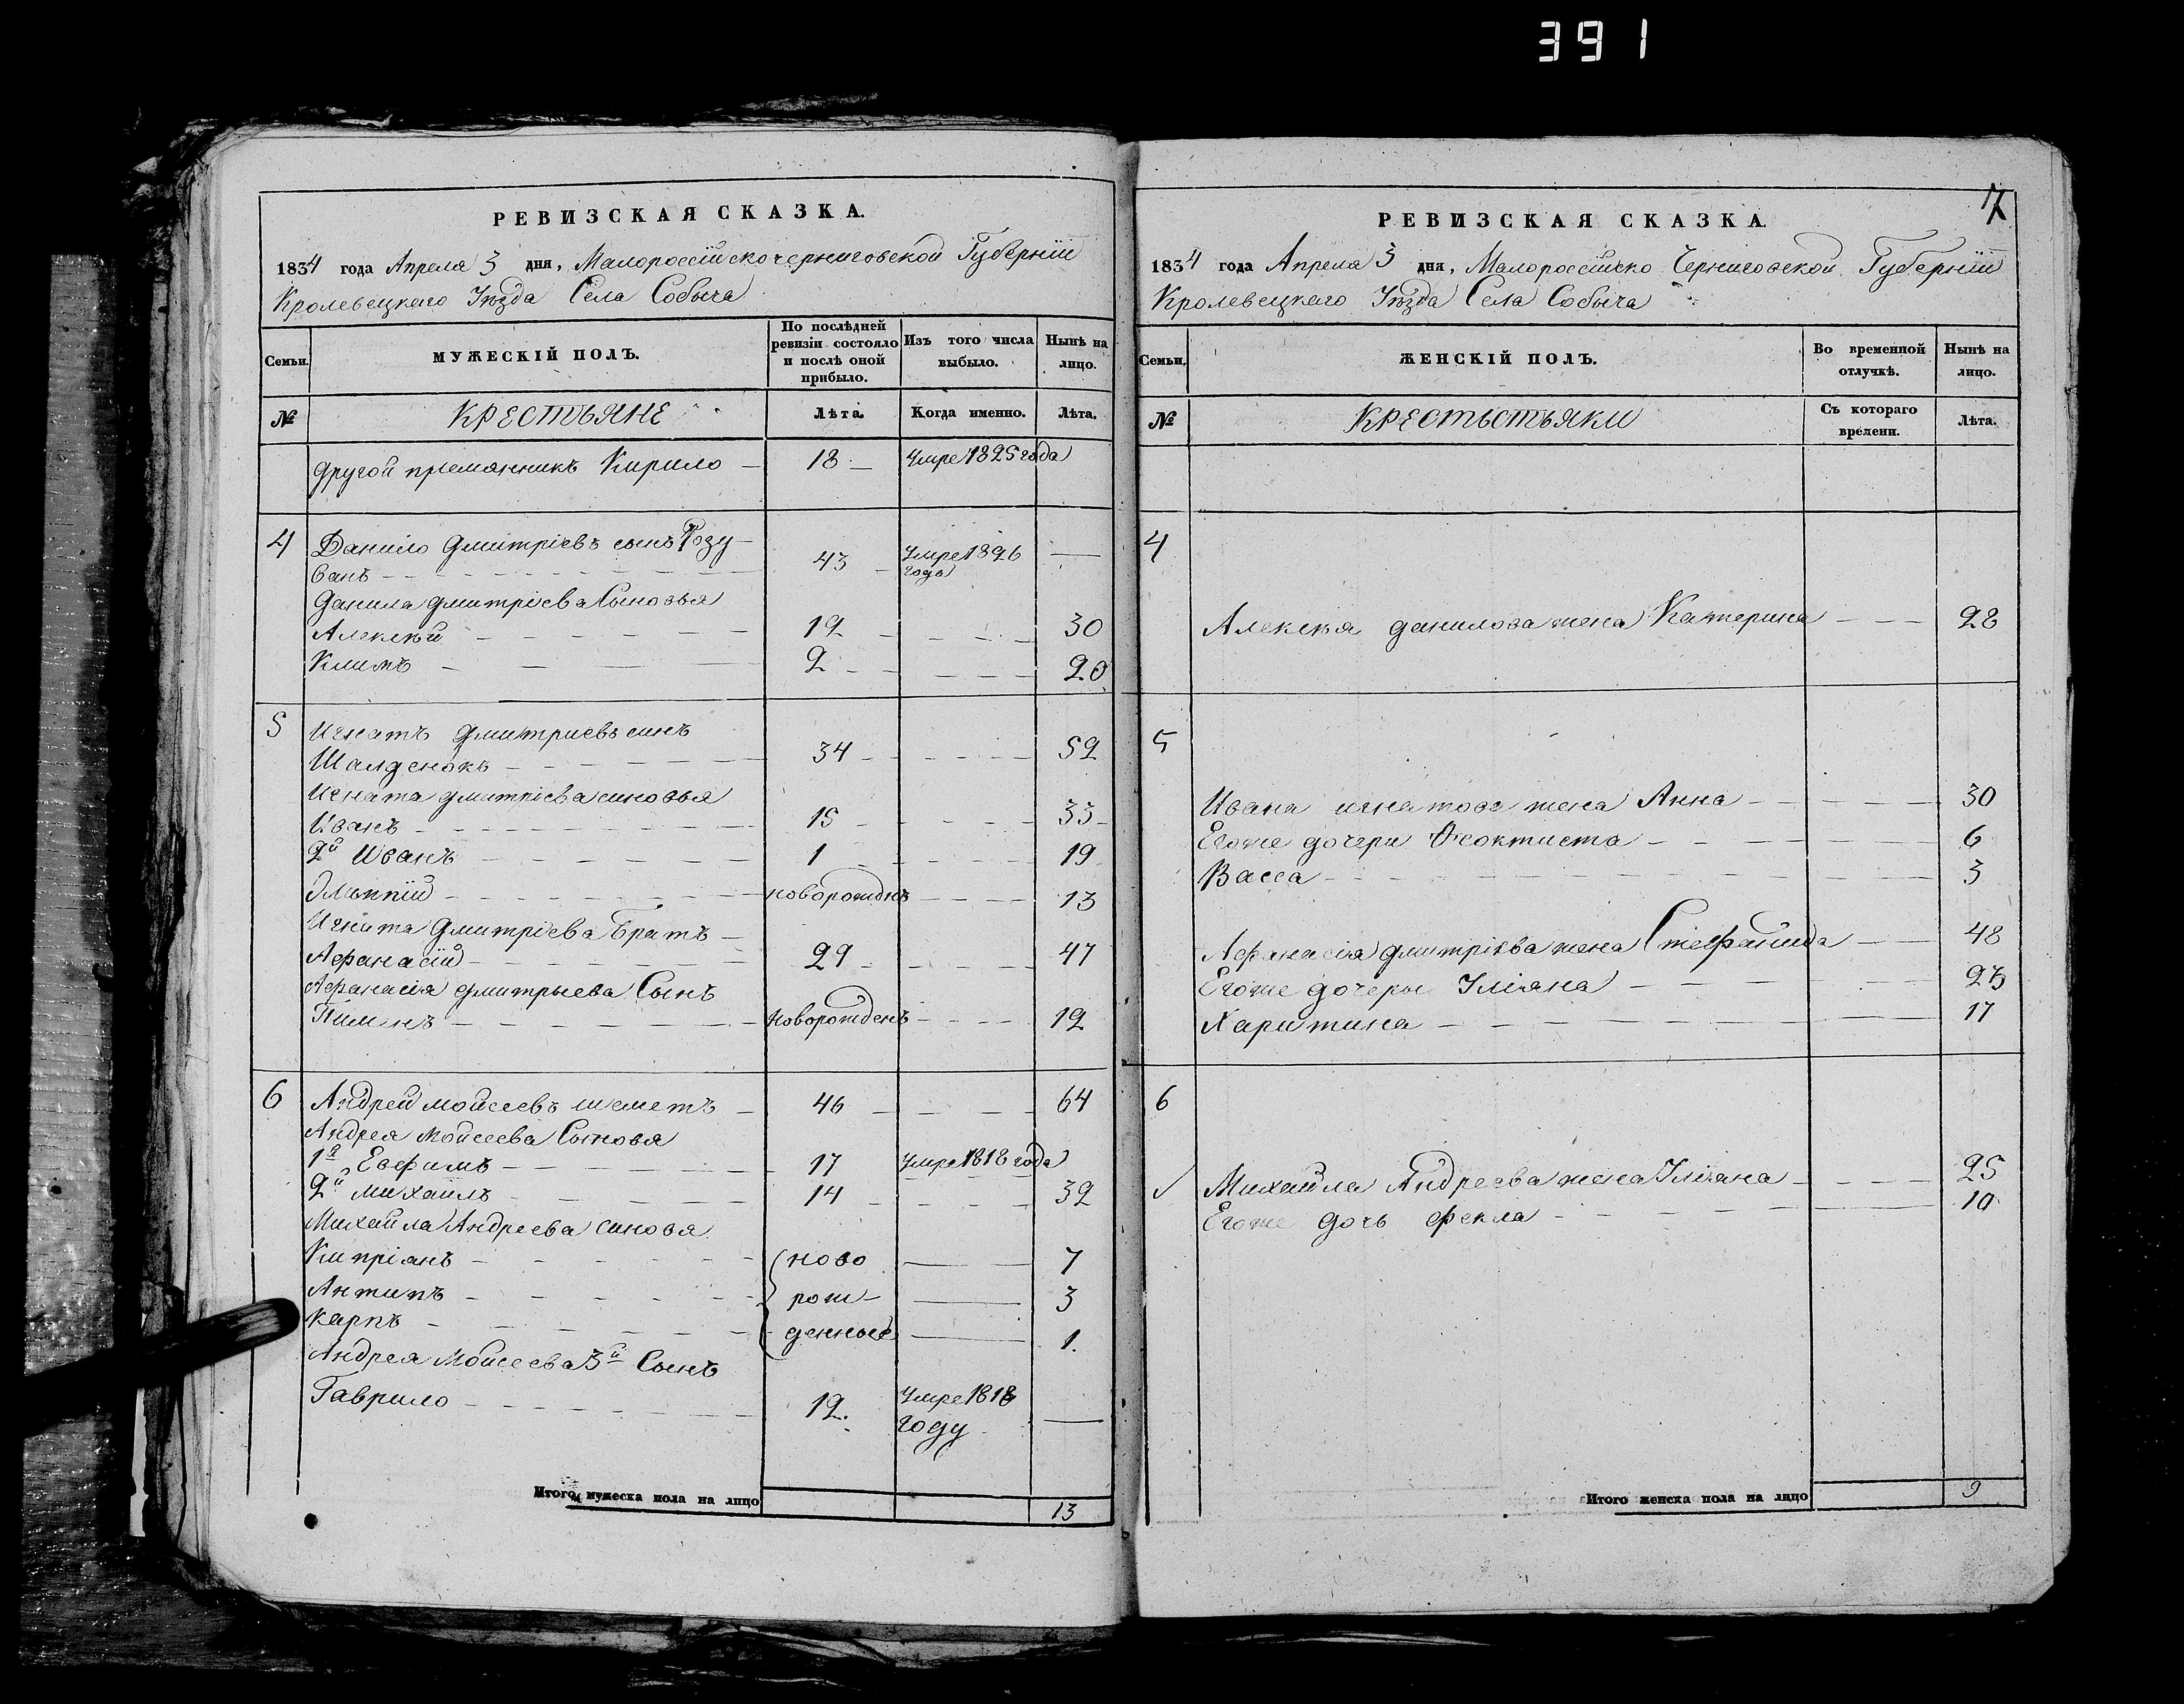 391
РЕВИЗСКАЯ СКАЗКА.
1834 года Апреля 3 дня, Малороссійскочерниговской Губерніи
Кролевецкаго Уѣзда Села Собыча
Семьи.
МУЖЕСКІЙ ПОЛЪ.
По послѣдней ревизіи состояло и послѣ оной прибыло.
Изъ того числа выбыло.
Нынѣ на лицо.
№
КРЕСТЬЯНЕ
Лѣта.
Когда именно.
Лѣта.
другой племянникъ Кирило — 18 — Умре 1825 года
4 Данило Дмитріевъ сынъ Розу-
ванъ 43 Умре 1826 года —
Данила дмитріева Сыновья
Алексѣй 12 30
Климъ 2 20
5 Игнатъ дмитриевъ синъ
Шалденокъ 34 52
Игната дмитріева синовья
Иванъ 15 33
2й Иванъ 1 19
новорожднъ 13
Игната Дмитріева Братъ
Афанасій 29 47
Афанасія дмитрыева Сынъ
Пименъ новорожденъ 12
6 Андрей мойсеевъ шеметъ 46 64
Андрея Мойсеева Сыновя
1й Евфимъ 17 Умре 1818 года
2й михаилъ 14 32
Михайла Андреева синовя
Кипріянъ ново 7
Антипъ рож- 3
карпъ денные 1.
Андрея Мойсеева 3й Сынъ
Гаврило 12. Умре 1818 году —
Итого мужеска пола на лицо 13
7
РЕВИЗСКАЯ СКАЗКА.
1834 года Апреля 3 дня, Малороссійско Черниговской Губерніи
Кролевецкаго Уѣзда Села Собыча
Семьи.
ЖЕНСКІЙ ПОЛЪ.
Во временной отлучкѣ.
Нынѣ на лицо.
№
КРЕСТЬСТЬЯКИ
Съ котораго времени.
Лѣта.
4
Алексѣя данилова жена Катерина 28
5
Ивана игнатова жена Анна 30
Егоже дочери Феоктиста 6
Васса 3
Афанасія дмитрієва жена 48
Егоже дочеры Уліяна 23
Харитина 17
6
Михайла Андреева жена Уліяна 25
Егоже дочь фекла 10
Итого женска пола на лицо 9